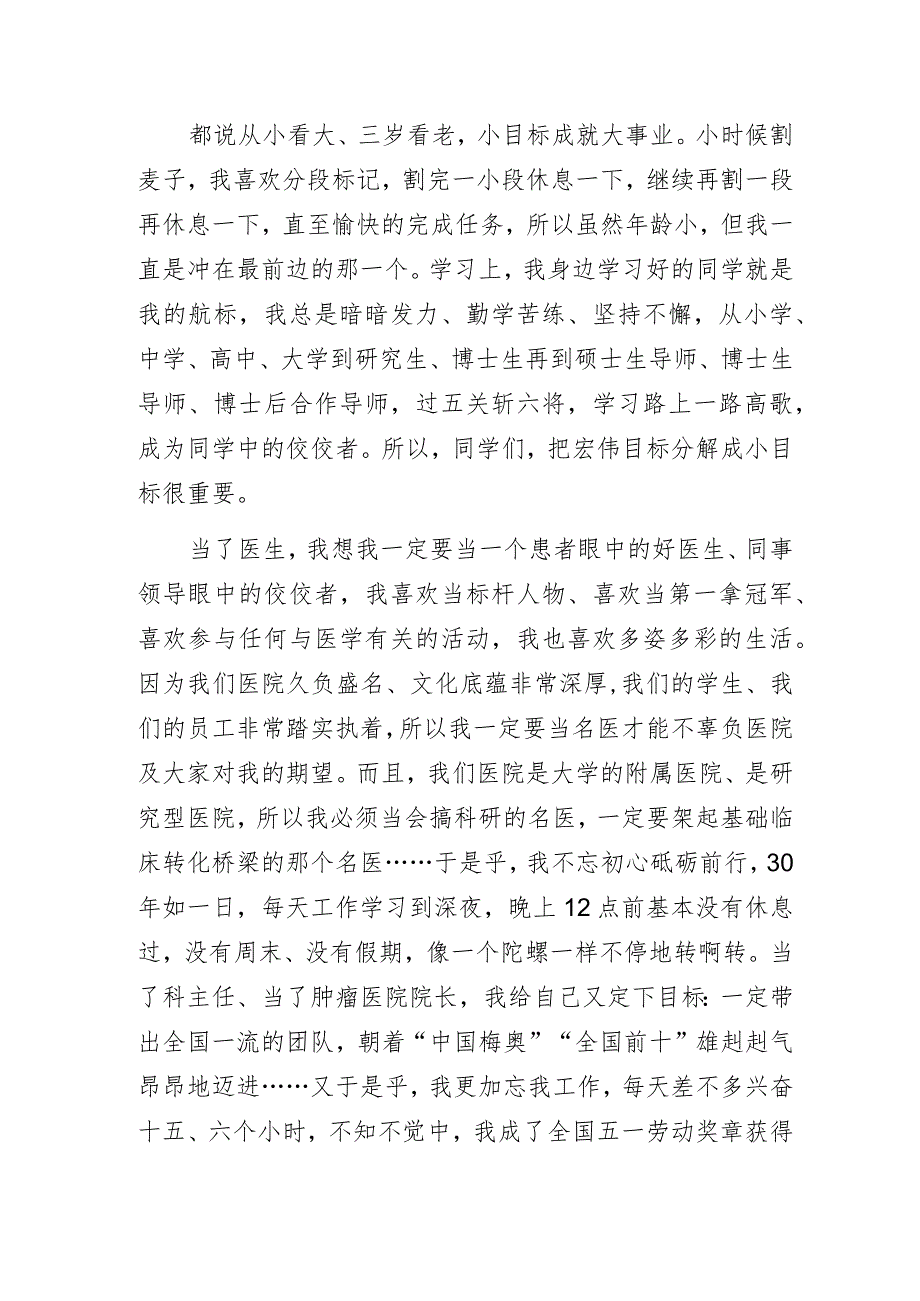 都说从小看大、三岁看老，小目标成就大事业。小时候割
麦子，我喜欢分段标记，割完一小段休息一下，继续再割一段
再休息一下，直至愉快的完成任务，所以虽然年龄小，但我一
直是冲在最前边的那一个。学习上，我身边学习好的同学就是
我的航标，我总是暗暗发力、勤学苦练、坚持不懈，从小学、
中学、高中、大学到研究生、博士生再到硕士生导师、博士生
导师、博士后合作导师，过五关斩六将，学习路上一路高歌，
成为同学中的佼佼者。所以，同学们，把宏伟目标分解成小目
标很重要。
当了医生，我想我一定要当一个患者眼中的好医生、同事
领导眼中的佼佼者，我喜欢当标杆人物、喜欢当第一拿冠军、
喜欢参与任何与医学有关的活动，我也喜欢多姿多彩的生活。
因为我们医院久负盛名、文化底蕴非常深厚,我们的学生、我
们的员工非常踏实执着,所以我一定要当名医才能不辜负医院
及大家对我的期望。而且，我们医院是大学的附属医院、是研
究型医院，所以我必须当会搞科研的名医，一定要架起基础临
床转化桥梁的那个名医……于是乎，我不忘初心砥砺前行，30
年如一日，每天工作学习到深夜，晚上12点前基本没有休息
过，没有周末、没有假期，像一个陀螺一样不停地转啊转。当
了科主任、当了肿瘤医院院长，我给自己又定下目标：一定带
出全国一流的团队，朝着“中国梅奥”“全国前十”雄赳赳气
昂昂地迈进……又于是乎，我更加忘我工作，每天差不多兴奋
十五、六个小时，不知不觉中，我成了全国五一劳动奖章获得